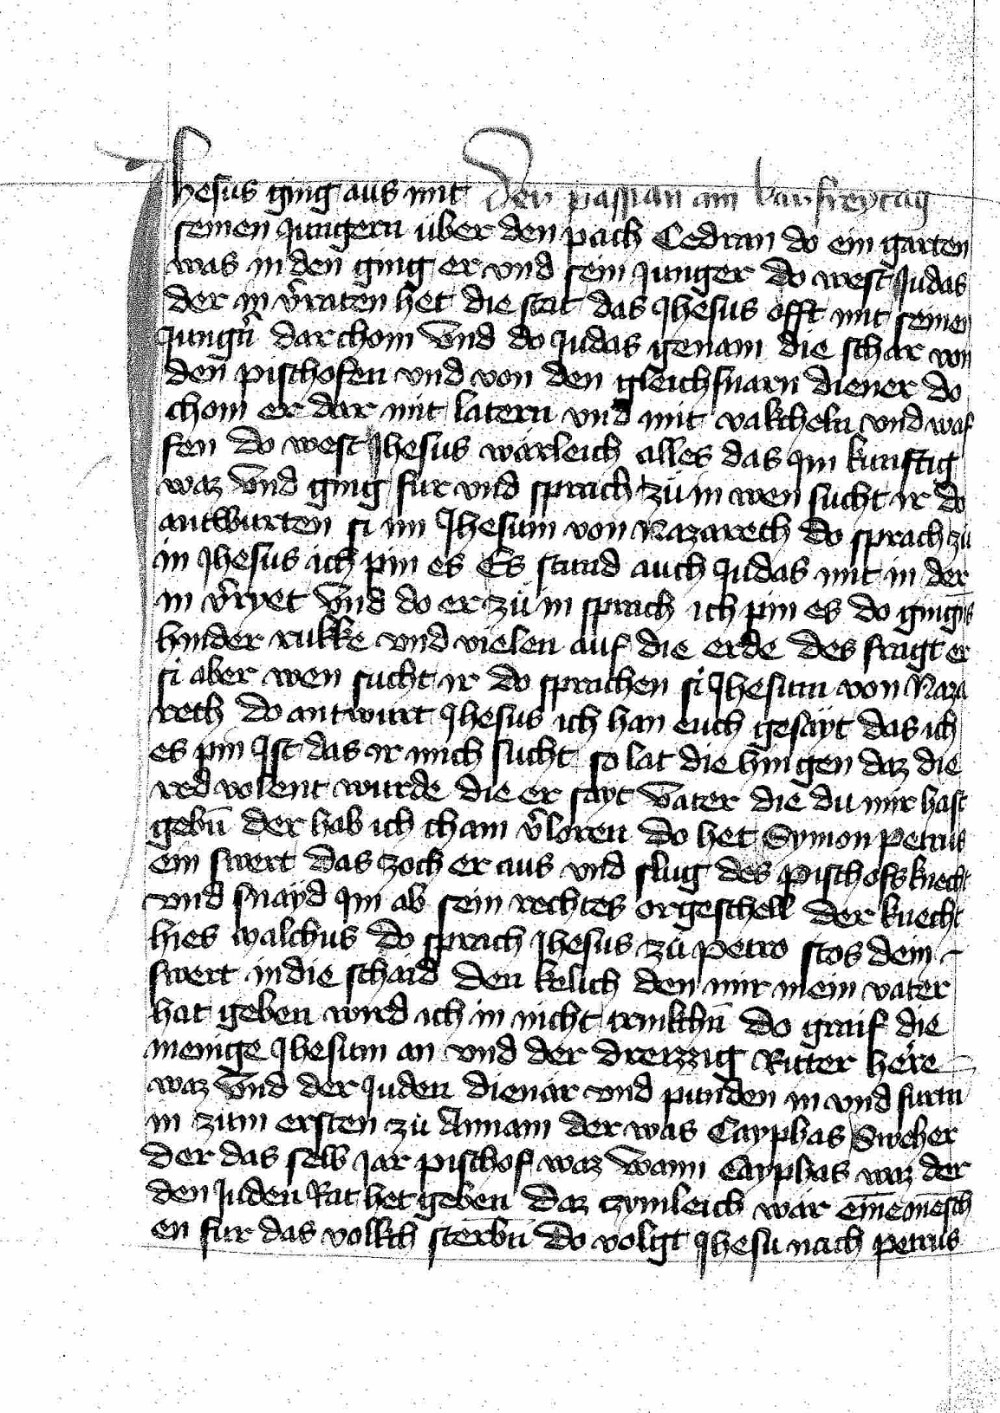 Jhesus ging aus mit Den passian am karfreytag
seinen Jungern über den pach Cedran do ein garten
was in den ging er vnd sein Junger do west Judas
der in v̄raten het die stat das Jhesus offt mit seinen
Jungn̄ dar chom Vnd do Judas genam die schar von
den pischofen vnd von den gleichsnarn diener do
chom er dar mit latern vnd mit vakcheln vnd waf
fen do west Jhesus wärleich alles das Im kunftig
waz Vnd ging fur vnd sprach zů in wen sucht ir do
antwurten si im Jhesum von Nazareth do sprach zů
in Jhesus ich pin es Es stund auch Judas mit in der
in v̄ryet Vnd do er zů in sprach ich pin es do gingns
hinder rukke vnd vielen auf die erde des fragt er
si aber wen sucht ir do sprachen si Jhesum von Naza
reth do antwurt Jhesus ich han euch gesäyt das ich
es pin Ist das ir mich sucht so lat die hin gen daz die
red volbent wurde die er sayt Vater die du mir hast
gebn̄ der hab ich cham v̄loren do het Symon Petrus
ein swert das zoch er aus vnd slug des pischofs knecht
vnd snayd Im ab sein rechtes orgeschell der knecht
hies walchus do sprach Jhesus zů Petro stos dein
swert in die schaid den kelich den mir mein vater
hat geben wird ich in nicht trinkchn̄ do graif die
menige Jhesum an vnd der drerzzig Ritter here
waz Vnd der Juden dienär vnd punden in vnd furtn
in zum ersten zů Annam der was Cayphas Sweher
der das selb Jar pischof waz Wann Cayphas waz der
den Juden Rat het geben daz czymleich wär einē mēsch
en fur das volkch sterbn̄ Do volgt Jhesu nach petrus